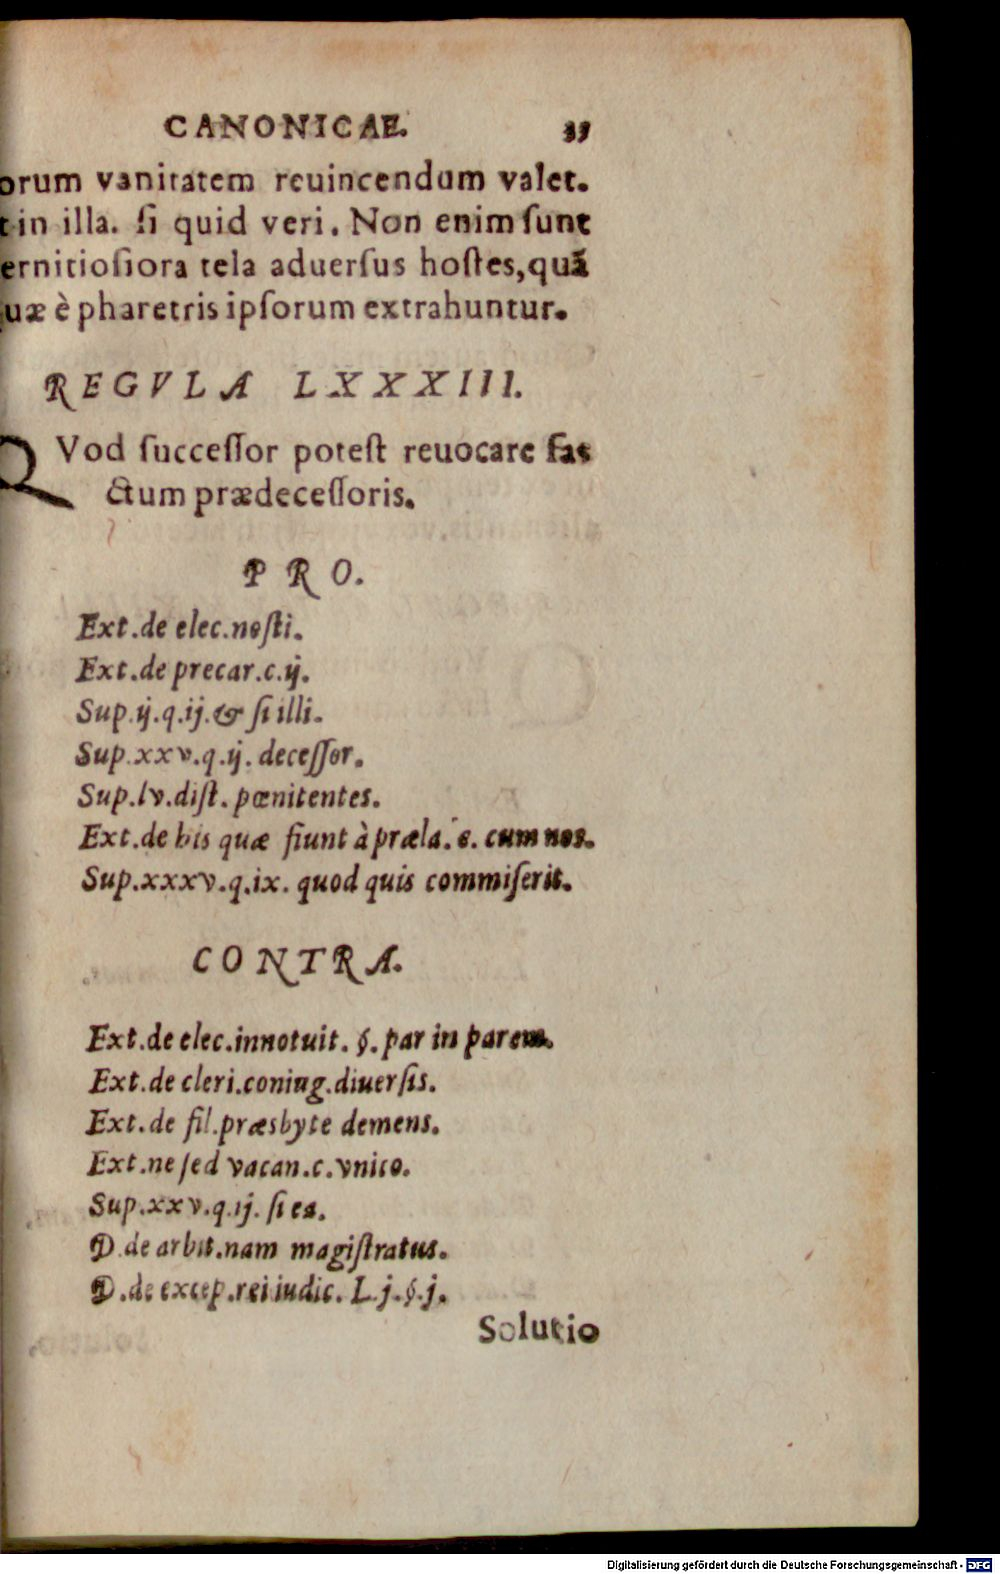 CANONICAE. 35
orum vanitatem reuincendum valet.
t in illa. ſi quid veri. Non enim ſunt
ernitioſiora tela aduerſus hoſtes, quã
uæ è pharetris ipſorum extrahuntur.
REGVLA LXXXIII.
QVod ſucceſſor poteſt reuocare fa-
ctum prædeceſſoris.
PRO.
Ext. de elec. noſti.
Ext. de precar. c. ij.
Sup. ij. q. ij. & ſi illi.
Sup. xxv. q. ij. deceſſor.
Sup. lv. diſt. pœnitentes.
Ext. de his quæ fiunt à præla. c. cum nos.
Sup. xxxv. q. ix. quod quis commiſerit.
CONTRA.
Ext. de elec. innotuit. §. par in parem.
Ext. de cleri. coniug. diuerſis.
Ext. de fil. præsbyte demens.
Ext. ne ſed vacan. c. vnico.
Sup. xxv. q. ij. ſi ea.
D. de arbit. nam magiſtratus.
D. de excep. rei iudic. L. j. §. j.
Solutio
Digitalisierung gefördert durch die Deutsche Forschungsgemeinschaft - DFG